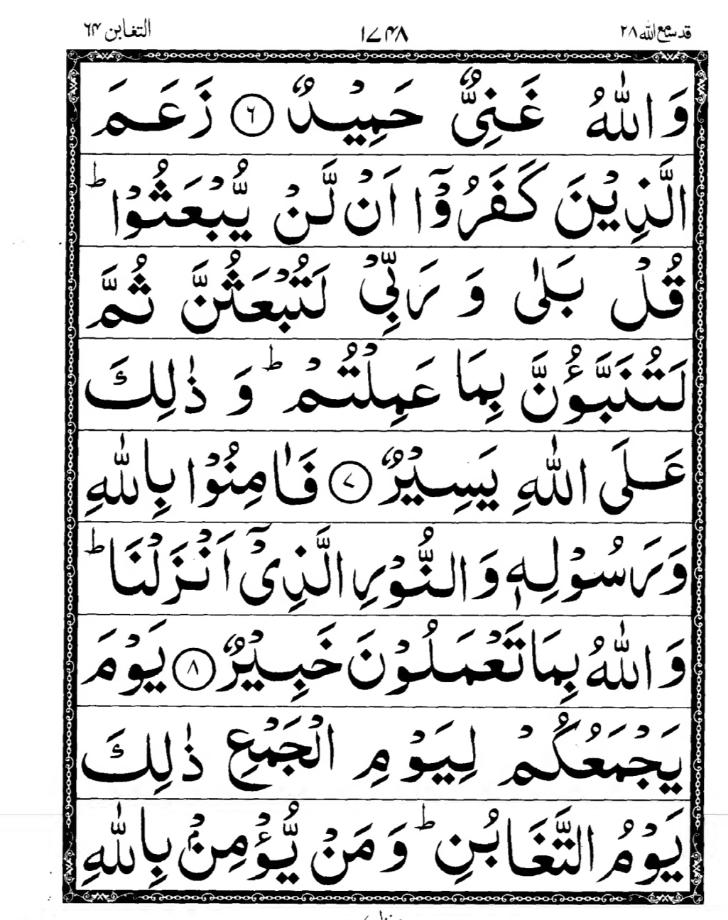 قد سمع الله ٢٨ ١٧٤٨ التغابن ٦٤
وَاللّٰهُ غَنِیٌّ حَمِیْدٌ ﴿٦﴾ زَعَمَ
الَّذِیْنَ كَفَرُوْۤا اَنْ لَّنْ یُّبْعَثُوْا ؕ
قُلْ بَلٰی وَ رَبِّیْ لَتُبْعَثُنَّ ثُمَّ
لَتُنَبَّؤُنَّ بِمَا عَمِلْتُمْ ؕ وَ ذٰلِكَ
عَلَی اللّٰهِ یَسِیْرٌ ﴿٧﴾ فَاٰمِنُوْا بِاللّٰهِ
وَرَسُوْلِهٖ وَالنُّوْرِ الَّذِیْۤ اَنْزَلْنَا ؕ
وَاللّٰهُ بِمَا تَعْمَلُوْنَ خَبِیْرٌ ﴿٨﴾ یَوْمَ
یَجْمَعُكُمْ لِیَوْمِ الْجَمْعِ ذٰلِكَ
یَوْمُ التَّغَابُنِ ؕ وَمَنْ یُّؤْمِنْۢ بِاللّٰهِ